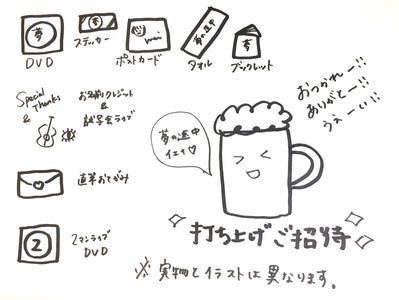 夢
DVD
夢
ステッカー
mai
ポストカード
夢の途中
タオル
夢
ブックレット
Special
Thanks
&
お名前クレジット
&
試写会ライブ
直筆おてがみ
2
2マンライブ
DVD
夢の途中
イェイ♡
おつかれー!!
ありがとー!!
うぇーい!!
打ち上げご招待
※実物とイラストは異なります。